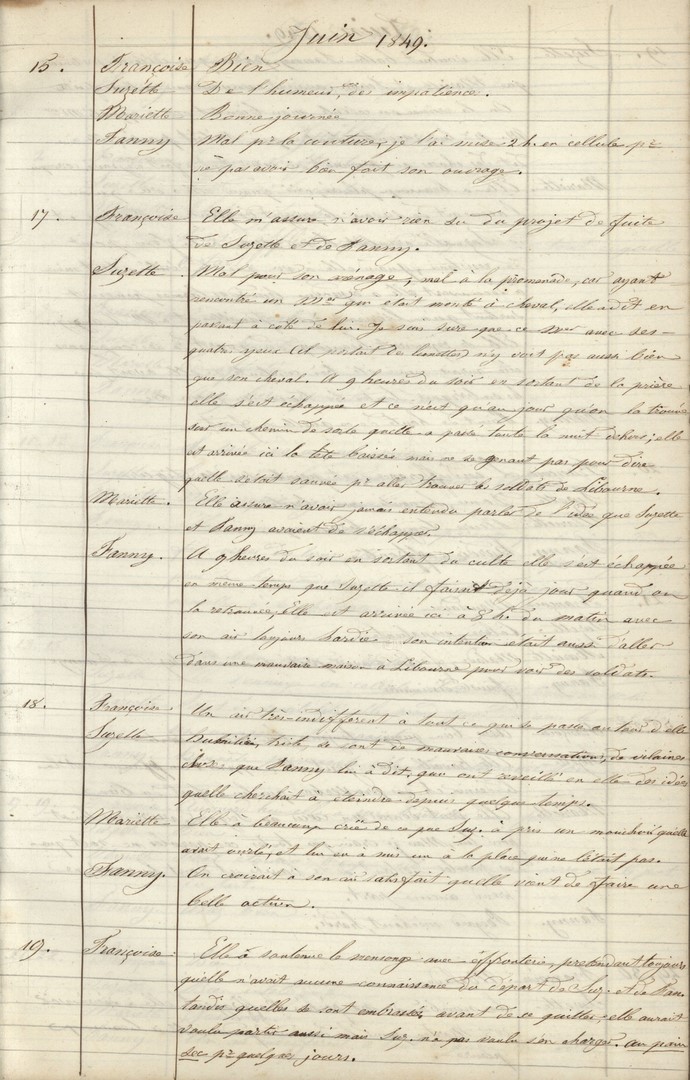 Juin 1849.
15. Françoise Bien
Suzette De l'humeur, des impatience.
Mariette Bonne journée
Fanny Mal pr la couture, je l'ai mise 2 h. en cellule pr
ne pas avoir bien fait son ouvrage.
17. Françoise Elle m'assure n'avoir rien su du projet de fuite
de Suzette et de Fanny.
Suzette Mal pour son ménage, mal à la promenade, car ayant
rencontré un Mr qui était monté à cheval, elle a dit en
passant à côté de lui. Je suis sure que ce Mr avec ses
quatre yeux (il portait des lunettes) n'y voit pas aussi bien
que son cheval. A 9 heures du soir en sortant de la prière
elle s'est échappée et ce n'est qu'au jour qu'on la trouvée
sur un chemin de sorte quelle a passé toute la nuit dehors; elle
est arrivée ici la tête baissée mais ne se gênant pas pour dire
quelle s'était sauvée pr aller trouver les soldats de Libourne.
Mariette. Elle assure n'avoir jamais entendu parler de l'idée que Suzette
et Fanny avaient de s'échapper.
Fanny. A 9 heures du soir en sortant du culte elle s'est échappée
en même temps que Suzette il faisait déjà jour quand on
la retrouvée, Elle est arrivée ici à 8 h. du matin avec
son air toujours hardie son intention était aussi d'aller
dans une mauvaise maison à Libourne pour voir des soldats.
18. Françoise. Un air très-indifférent à tout ce qui se passe autour d'elle
Suzette Humiliée, triste ce sont de mauvaises conversations, de vilaines
que Fanny lui à dit, qui ont reveillé en elle des idées
quelle cherchait à éteindre depuis quelque temps.
Mariette Elle à beaucoup criée de ce que Suz. à pris un mouchoir quelle
avait ourlé, et lui en à mis un à la place qui ne l'était pas.
Fanny. On croirait à son air satisfait quelle vient de faire une
belle action.
19. Françoise. Elle à soutenue le mensonge avec éffronterie, prétendant toujours
quelle n'avait aucune connaissance du départ de Suz. et de Fan.
tandis quelles se sont embrassés, avant de ce quitter, elle aurait
voulu partir aussi mais Suz. n'a pas voulu s'en charger. au pain
sec pr quelques jours.